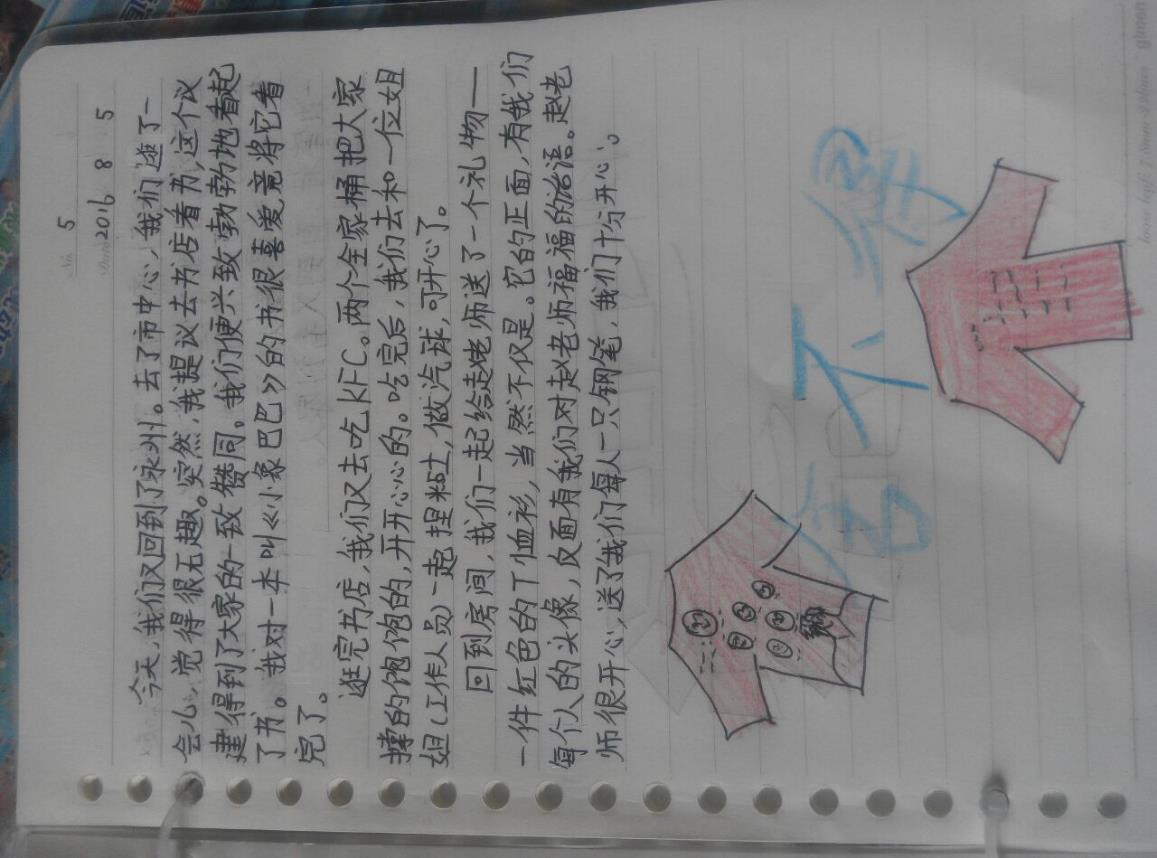 No. 5
Date 2016 8 5
今天,我们又回到了永州。去了市中心,我们逛了一
会儿,觉得很石趣。突然,我提议去书店看书,这个议
建得到了大家的一致赞同。我们便兴致勃勃地看起
了书。我对一本叫《小象巴巴》的书很喜爱竟将它看
完了。
逛完书店,我们又去吃KFC。两个全家桶把大家
撑的饱饱的,开开心心的。吃完后,我们去和一位姐
姐(工作人员)一起捏粘土,做汽球,可开心了。
回到房间,我们一起给赵老师送了一个礼物——
一件红色的T恤衫,当然不仅是。它的正面,有我们
每个人的头像,反面有我们对赵老师福福的话语。赵老
师很开心,送了我们每人一只钢笔,我们十分开心。
舍不得